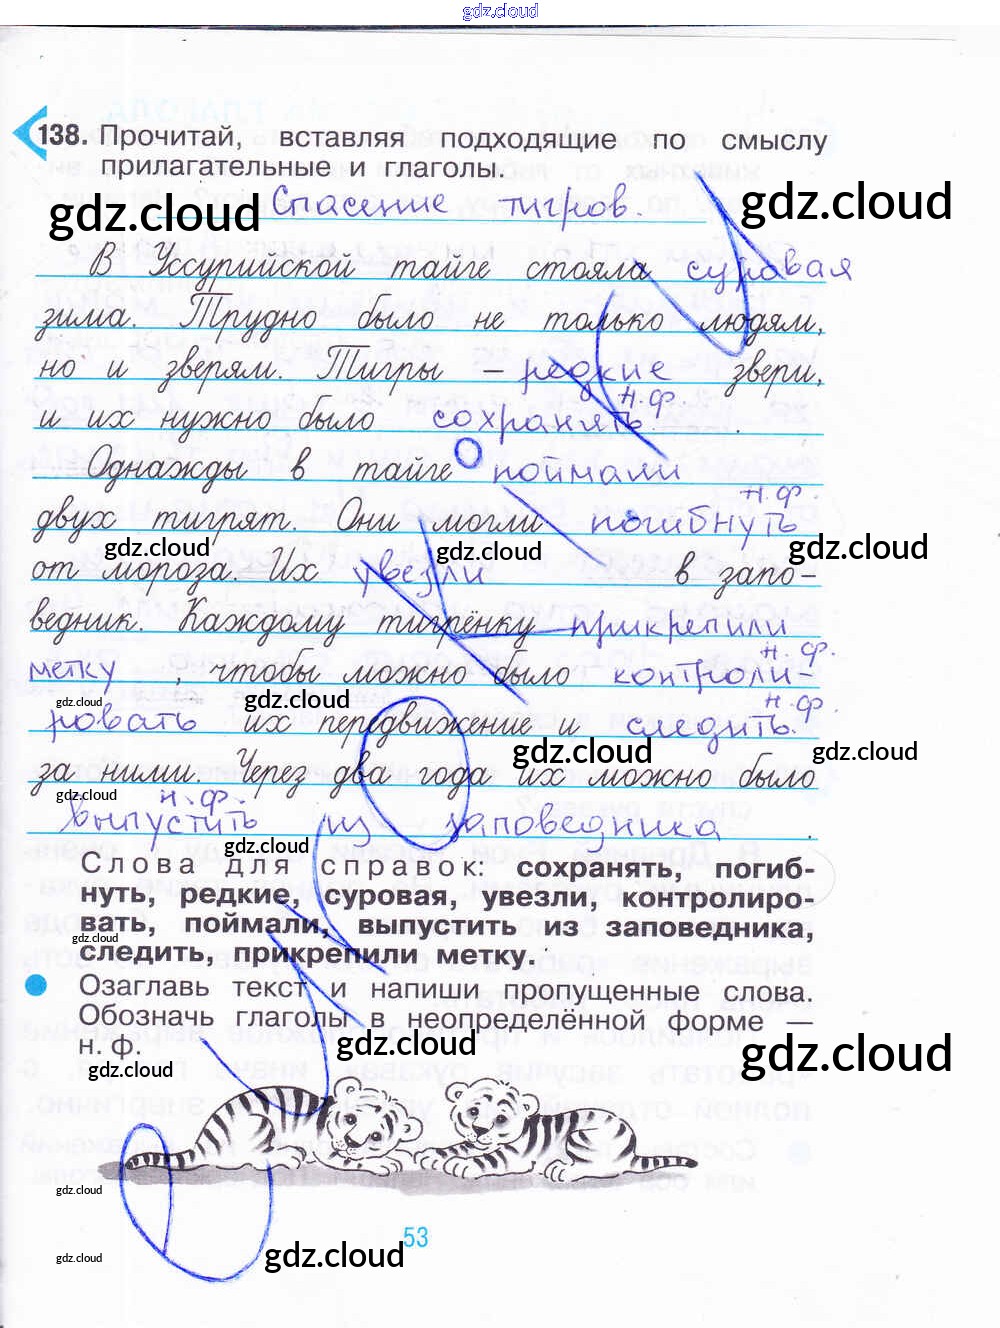 gdz.cloud
138. Прочитай, вставляя подходящие по смыслу
прилагательные и глаголы.
gdz.cloud Спасение тигров. gdz.cloud
В Уссурийской тайге стояла суровая
зима. Трудно было не только людям,
но и зверям. Тигры – редкие звери,
н.ф.
и их нужно было сохранять.
Однажды в тайге поймали
н.ф.
двух тигрят. Они могли погибнуть
gdz.cloud gdz.cloud gdz.cloud
от мороза. Их увезли в запо-
ведник. Каждому тигрёнку прикрепили
н.ф.
метку, чтобы можно было контроли-
gdz.cloud gdz.cloud н.ф.
ровать их передвижение и следить.
gdz.cloud gdz.cloud
за ними. Через два года их можно было
gdz.cloud н.ф.
выпустить из заповедника.
gdz.cloud
Слова для справок: сохранять, погиб-
нуть, редкие, суровая, увезли, контролиро-
вать, поймали, выпустить из заповедника,
gdz.cloud
следить, прикрепили метку.
Озаглавь текст и напиши пропущенные слова.
Обозначь глаголы в неопределённой форме —
н. ф.
gdz.cloud gdz.cloud
gdz.cloud
gdz.cloud
53
gdz.cloud gdz.cloud